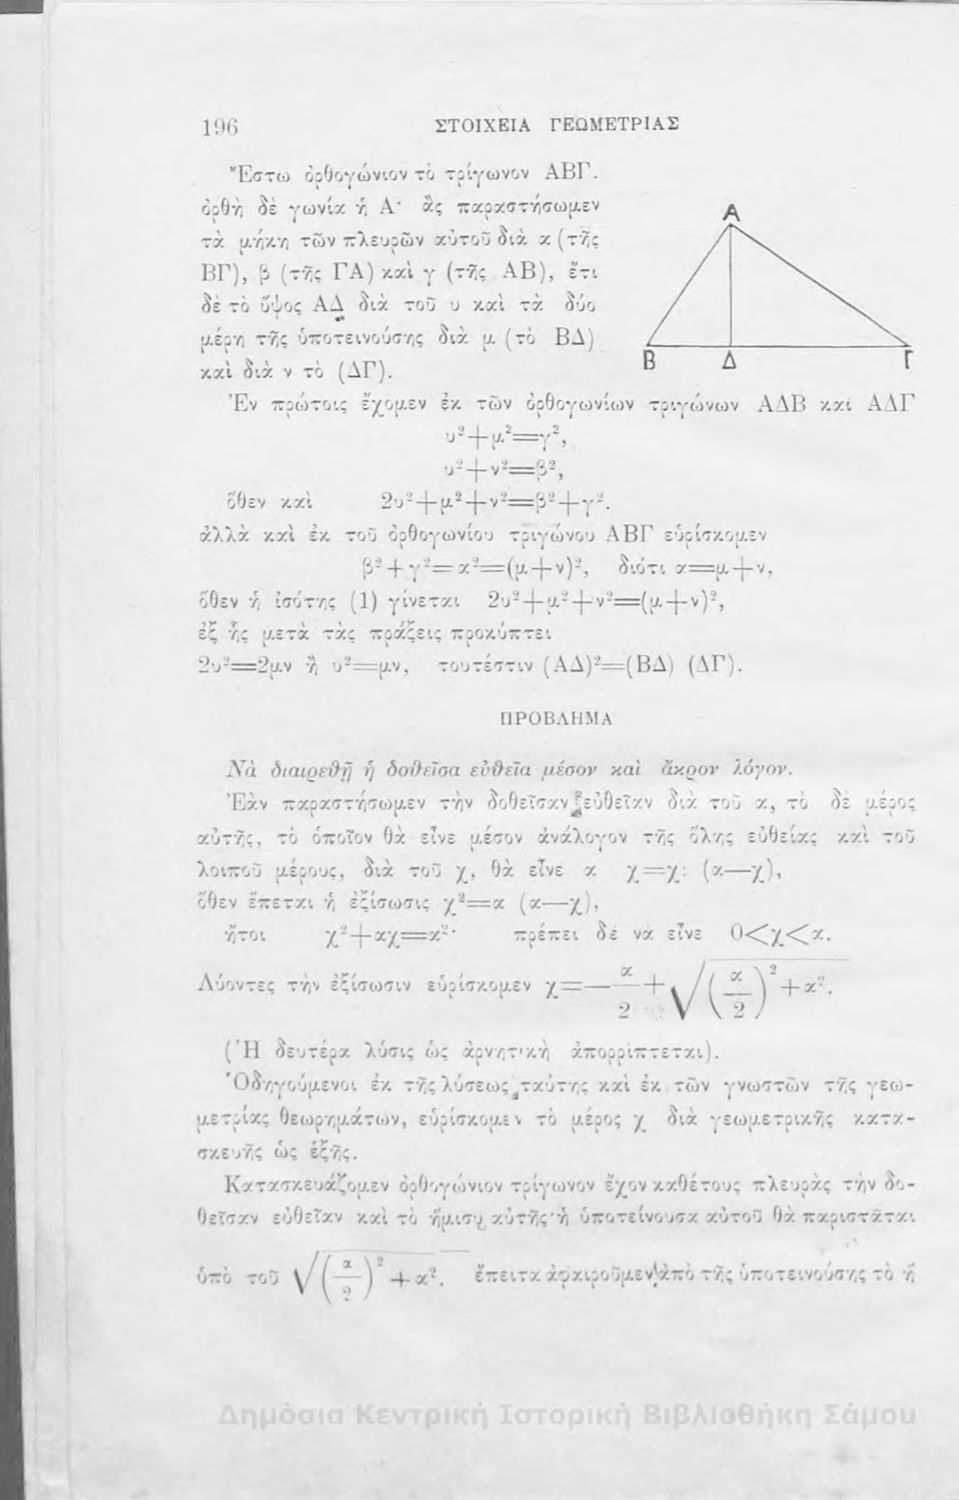 196 ΣΤΟΙΧΕΙΑ ΓΕΩΜΕΤΡΙΑΣ
Ἔστω ὀρθογώνιον τὸ τρίγωνον ΑΒΓ.
ὀρθὴ δὲ γωνία ἡ Α· ἃς παραστήσωμεν
τὰ μήκη τῶν πλευρῶν αὐτοῦ διὰ α (τῆς
ΒΓ), β (τῆς ΓΑ) καὶ γ (τῆς ΑΒ), ἔτι
δὲ τὸ ὕψος ΑΔ διὰ τοῦ υ καὶ τὰ δύο
μέρη τῆς ὑποτεινούσης διὰ μ (τὸ ΒΔ)
καὶ διὰ ν τὸ (ΔΓ).
Α
Β Δ Γ
Ἐν πρώτοις ἔχομεν ἐκ τῶν ὀρθογωνίων τριγώνων ΑΔΒ καὶ ΑΔΓ
υ²+μ²=γ²,
υ²+ν²=β²,
ὅθεν καὶ 2υ²+μ²+ν²=β²+γ².
ἀλλὰ καὶ ἐκ τοῦ ὀρθογωνίου τριγώνου ΑΒΓ εὑρίσκομεν
β²+γ²=α²=(μ+ν)², διότι α=μ+ν,
ὅθεν ἡ ἰσότης (1) γίνεται 2υ²+μ²+ν²=(μ+ν)²,
ἐξ ἧς μετὰ τὰς πράξεις προκύπτει
2υ²=2μν ἢ υ²=μν, τουτέστιν (ΑΔ)²=(ΒΔ) (ΔΓ).
ΠΡΟΒΛΗΜΑ
Νὰ διαιρεθῇ ἡ δοθεῖσα εὐθεῖα μέσον καὶ ἄκρον λόγον.
Ἐὰν παραστήσωμεν τὴν δοθεῖσαν εὐθεῖαν διὰ τοῦ α, τὸ δὲ μέρος
αὐτῆς, τὸ ὁποῖον θὰ εἶνε μέσον ἀνάλογον τῆς ὅλης εὐθείας καὶ τοῦ
λοιποῦ μέρους, διὰ τοῦ χ, θὰ εἶνε α χ=χ: (α—χ),
ὅθεν ἕπεται ἡ ἐξίσωσις χ²=α (α—χ),
ἤτοι χ²+αχ=α²· πρέπει δὲ νὰ εἶνε 0<χ<α.
Λύοντες τὴν ἐξίσωσιν εὑρίσκομεν χ=—α/2+√(α/2)²+α².
(Ἡ δευτέρα λύσις ὡς ἀρνητικὴ ἀπορρίπτεται).
Ὁδηγούμενοι ἐκ τῆς λύσεως ταύτης καὶ ἐκ τῶν γνωστῶν τῆς γεω-
μετρίας θεωρημάτων, εὑρίσκομεν τὸ μέρος χ διὰ γεωμετρικῆς κατα-
σκευῆς ὡς ἑξῆς.
Κατασκευάζομεν ὀρθογώνιον τρίγωνον ἔχον καθέτους πλευρὰς τὴν δο-
θεῖσαν εὐθεῖαν καὶ τὸ ἥμισυ αὐτῆς· ἡ ὑποτείνουσα αὐτοῦ θὰ παριστᾶται
ὑπὸ τοῦ √(α/2)²+α². ἔπειτα ἀφαιροῦμεν ἀπὸ τῆς ὑποτεινούσης τὸ ἥ
Δημόσια Κεντρική Ιστορική Βιβλιοθήκη Σάμου